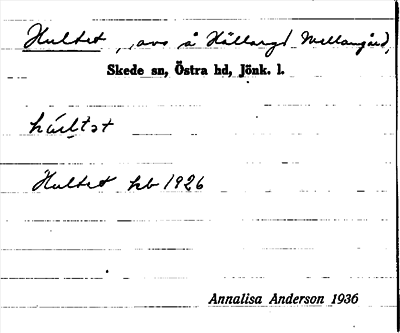 Hultet, avs å Hållaryd Mellangård,
Skede sn, Östra hd, Jönk. l.
húltət
Hultet kb 1926
Annalisa Anderson 1936